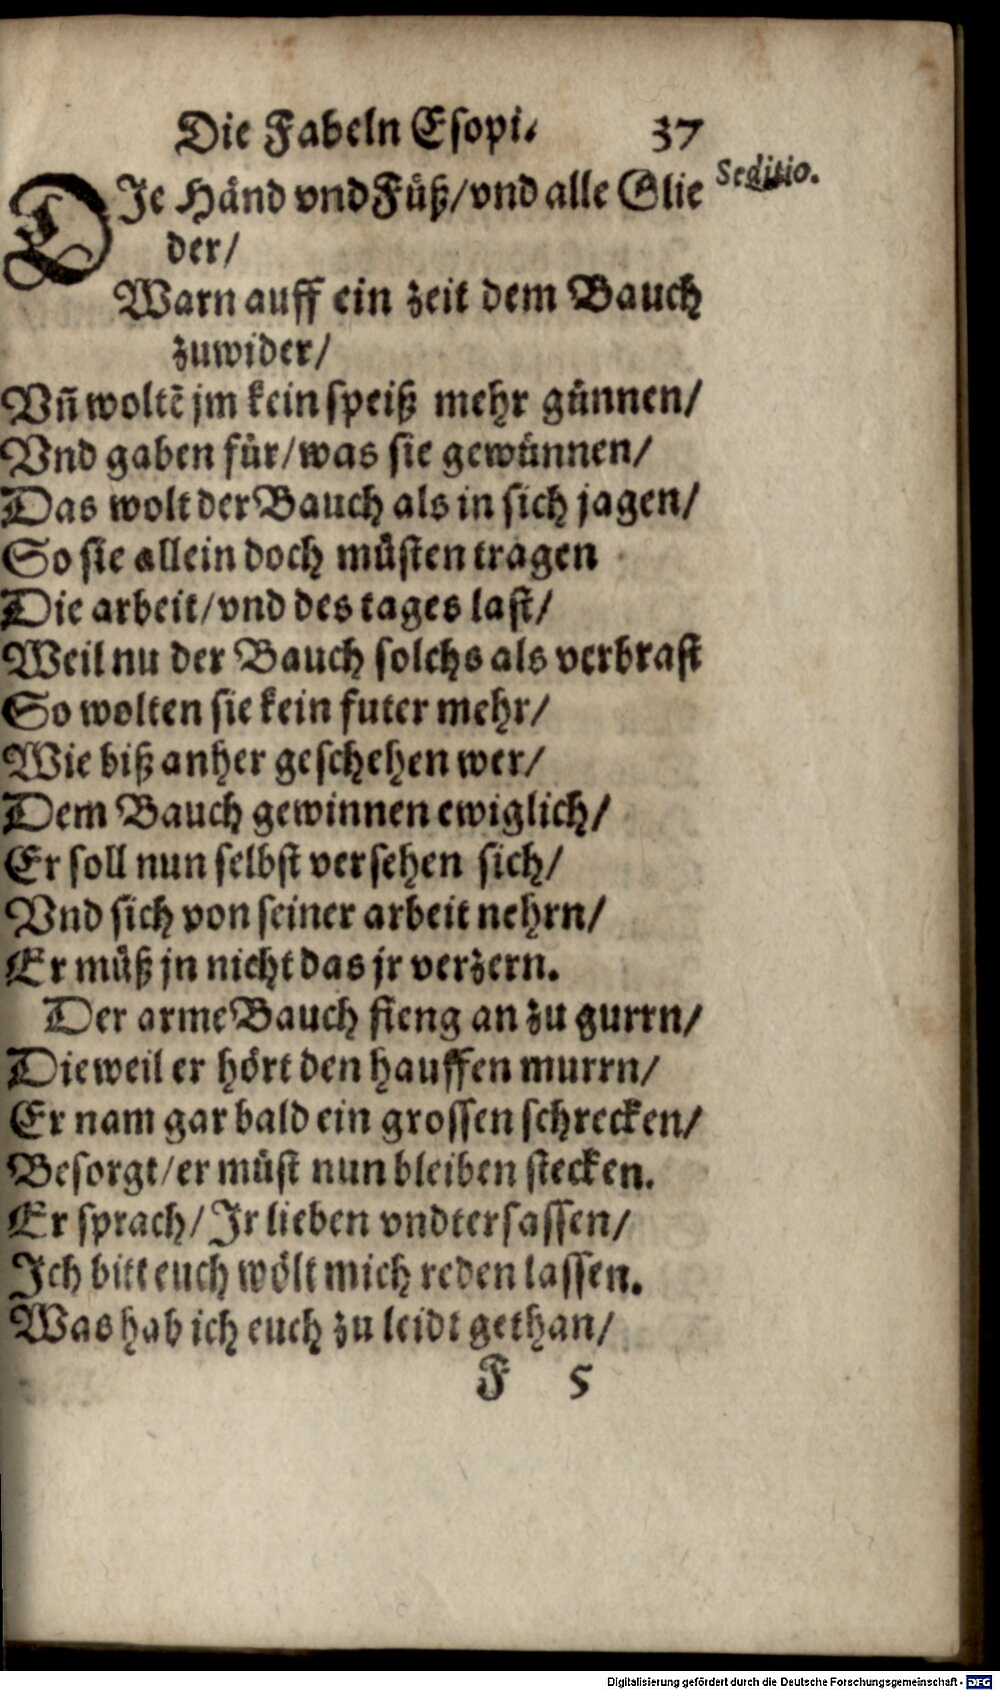 Die Fabeln Esopi. 37
Seditio.
DJe Händ vnd Füß/vnd alle Glie
der/
Warn auff ein zeit dem Bauch
zuwider/
Vñ woltẽ jm kein speiß mehr günnen/
Vnd gaben für/was sie gewünnen/
Das wolt der Bauch als in sich jagen/
So sie allein doch müsten tragen
Die arbeit/vnd des tages last/
Weil nu der Bauch solchs als verbrast
So wolten sie kein futer mehr/
Wie biß anher geschehen wer/
Dem Bauch gewinnen ewiglich/
Er soll nun selbst versehen sich/
Vnd sich von seiner arbeit nehrn/
Er müß jn nicht das jr verzern.
Der arme Bauch fieng an zu gurrn/
Dieweil er hört den hauffen murrn/
Er nam gar bald ein grossen schrecken/
Besorgt/er müst nun bleiben stecken.
Er sprach/Jr lieben vndtersassen/
Jch bitt euch wölt mich reden lassen.
Was hab ich euch zu leidt gethan/
F 5
Digitalisierung gefördert durch die Deutsche Forschungsgemeinschaft - DFG